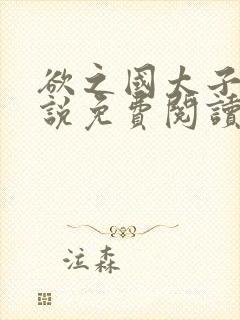 欲之國大子
說免費閱讀
泣森